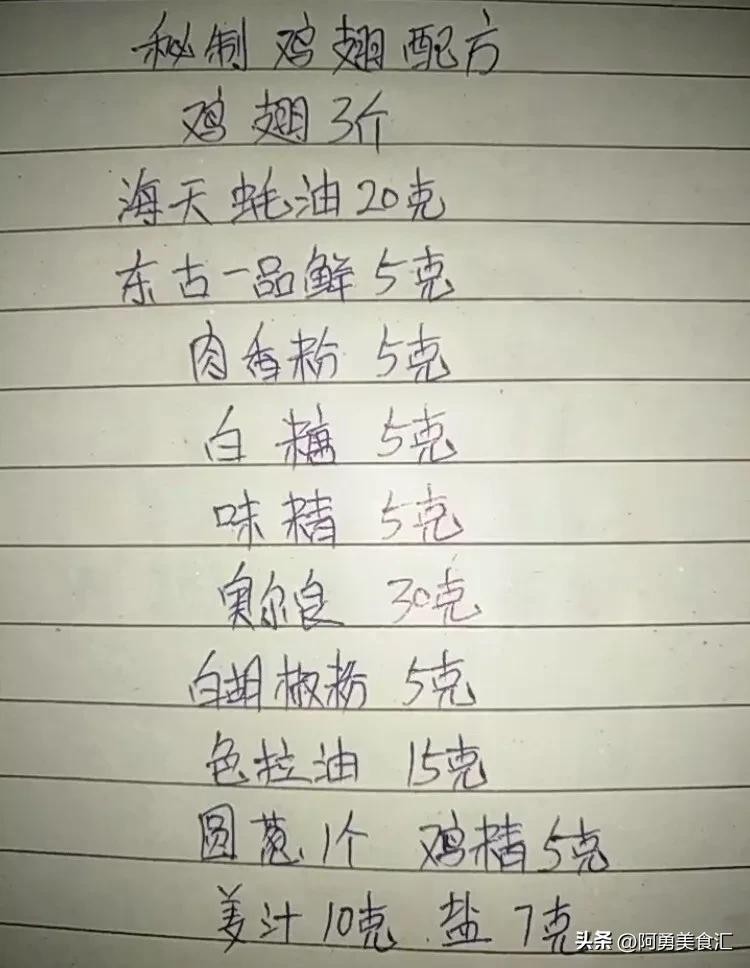 秘制鸡翅配方
鸡翅3个
海天蚝油20克
东古一品鲜5克
肉香粉 5克
白糖 5克
味精 5克
奥尔良 30克
白胡椒粉 5克
色拉油 15克
圆葱1个 鸡精5克
姜汁10克 盐7克
头条 @阿勇美食汇